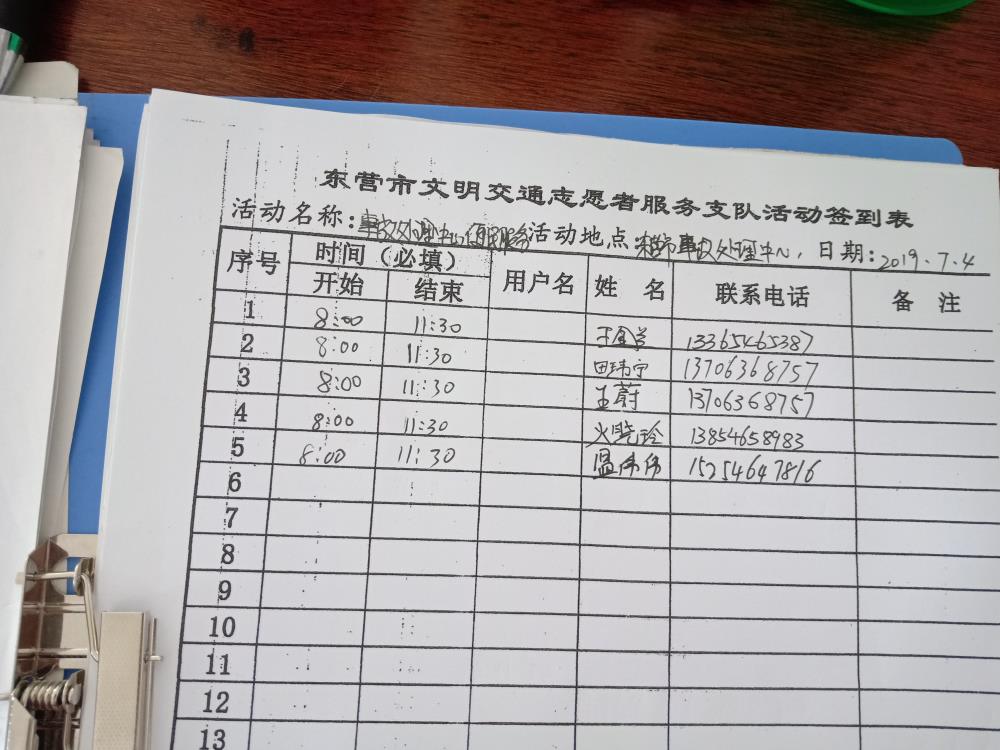 东营市文明交通志愿者服务支队活动签到表
活动名称:事故处理中心便民服务 活动地点 事故处理中心, 日期:2019.7.4
序号 时间(必填) 用户名 姓 名 联系电话 备 注
开始 结束
1 8:00 11:30 13365465387
2 8:00 11:30 田玮宁 13706368757
3 8:00 11:30 王蔚 13706368757
4 8:00 11:30 火晓玲 13854658983
5 8:00 11:30 温伟伟 15254647816
6
7
8
9
10
11
12
13